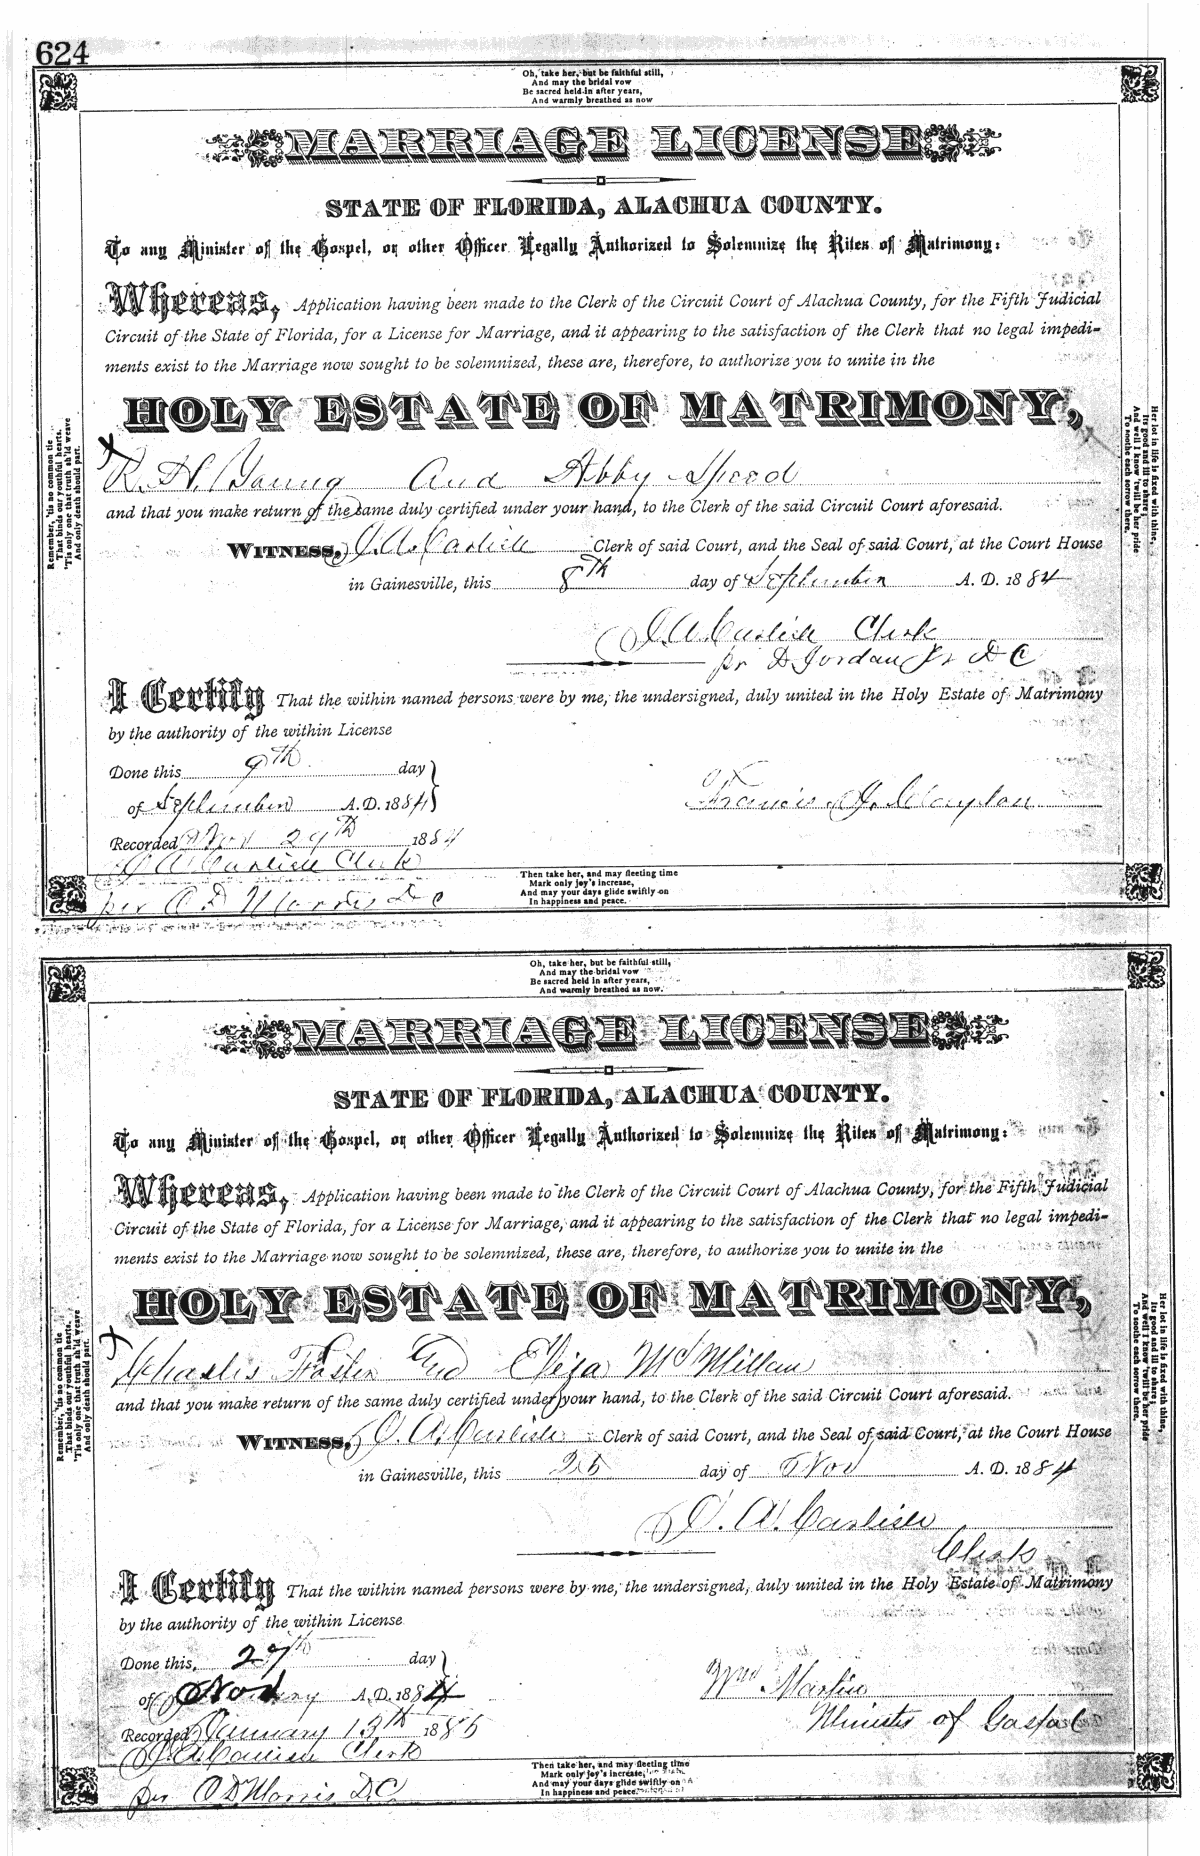 624
Oh, take her, but be faithful still,
And may the bridal vow
Be sacred held in after years,
And warmly breathed as now
MARRIAGE LICENSE
STATE OF FLORIDA, ALACHUA COUNTY.
To any Minister of the Gospel, or other Officer Legally Authorized to Solemnize the Rites of Matrimony:
Whereas, Application having been made to the Clerk of the Circuit Court of Alachua County, for the Fifth Judicial
Circuit of the State of Florida, for a License for Marriage, and it appearing to the satisfaction of the Clerk that no legal impedi-
ments exist to the Marriage now sought to be solemnized, these are, therefore, to authorize you to unite in the
HOLY ESTATE OF MATRIMONY,
R. H. Young and Abby Speed
and that you make return of the same duly certified under your hand, to the Clerk of the said Circuit Court aforesaid.
WITNESS, J. A. Carlisle Clerk of said Court, and the Seal of said Court, at the Court House
in Gainesville, this 8th day of September A. D. 1884
J. A. Carlisle Clerk
pr D Jordan Jr D C
I Certify That the within named persons were by me, the undersigned, duly united in the Holy Estate of Matrimony
by the authority of the within License
Done this 9th day
of September A. D. 1884
Francis J. Clayton
Recorded Nov 29th 1884
J A Carlisle Clerk
per C D Morris D C
Remember, 'tis no common tie
That binds our youthful hearts,
'Tis only one that truth sh'ld weave
And only death should part.
Her lot in life is fixed with thine,
Its good and ill to share;
And well I know 'twill be her pride
To soothe each sorrow there.
Then take her, and may fleeting time
Mark only joy's increase,
And may your days glide swiftly on
In happiness and peace.
Oh, take her, but be faithful still,
And may the bridal vow
Be sacred held in after years,
And warmly breathed as now.
MARRIAGE LICENSE
STATE OF FLORIDA, ALACHUA COUNTY.
To any Minister of the Gospel, or other Officer Legally Authorized to Solemnize the Rites of Matrimony:
Whereas, Application having been made to the Clerk of the Circuit Court of Alachua County, for the Fifth Judicial
Circuit of the State of Florida, for a License for Marriage, and it appearing to the satisfaction of the Clerk that no legal impedi-
ments exist to the Marriage now sought to be solemnized, these are, therefore, to authorize you to unite in the
HOLY ESTATE OF MATRIMONY,
Charles Foster and Eliza McMillan
and that you make return of the same duly certified under your hand, to the Clerk of the said Circuit Court aforesaid.
WITNESS, J. A. Carlisle Clerk of said Court, and the Seal of said Court, at the Court House
in Gainesville, this 25 day of Nov A. D. 1884
J. A. Carlisle
Clerk
I Certify That the within named persons were by me, the undersigned, duly united in the Holy Estate of Matrimony
by the authority of the within License
Done this 27th day
of Nov A. D. 1884
Wm Martin
Minister of Gospel
Recorded January 13th 1885
J. A. Carlisle Clerk
per C D Morris D. C.
Remember, 'tis no common tie
That binds our youthful hearts,
'Tis only one that truth sh'ld weave
And only death should part.
Her lot in life is fixed with thine,
Its good and ill to share;
And well I know 'twill be her pride
To soothe each sorrow there.
Then take her, and may fleeting time
Mark only joy's increase,
And may your days glide swiftly on
In happiness and peace.